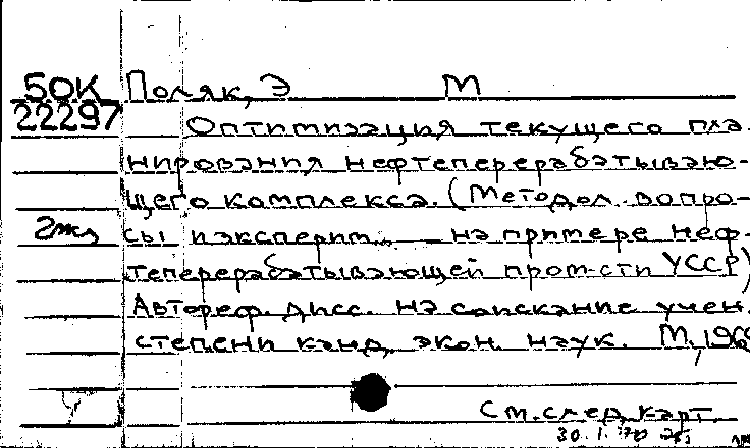 50К Поляк, Э М
22297
Оптимизация текущего пла-
нирования нефтеперерабатываю-
щего комплекса. (Методол. вопро-
сы и эксперим... — на примере неф-
теперерабатывающей пром-сти УССР)
Автореф. дисс. на соискание учен.
степени канд. экон. наук. М., 196
См. след. карт.
30.1.70